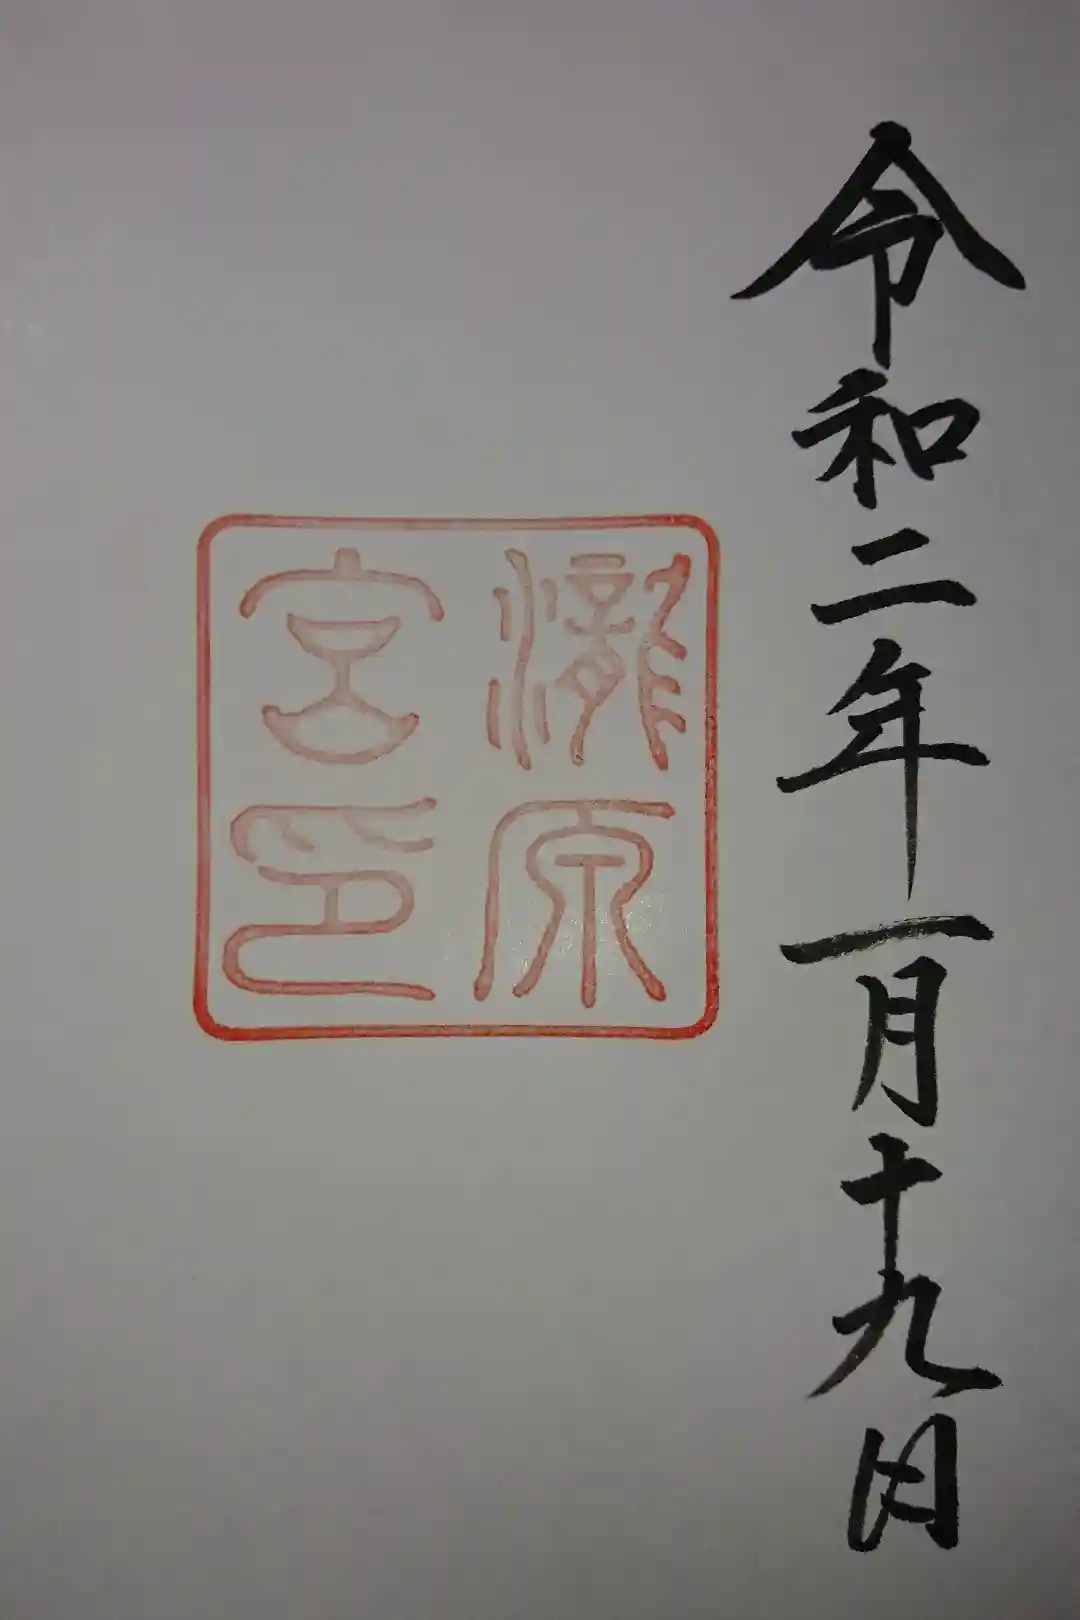 令和二年一月十九日
瀧原
宮印